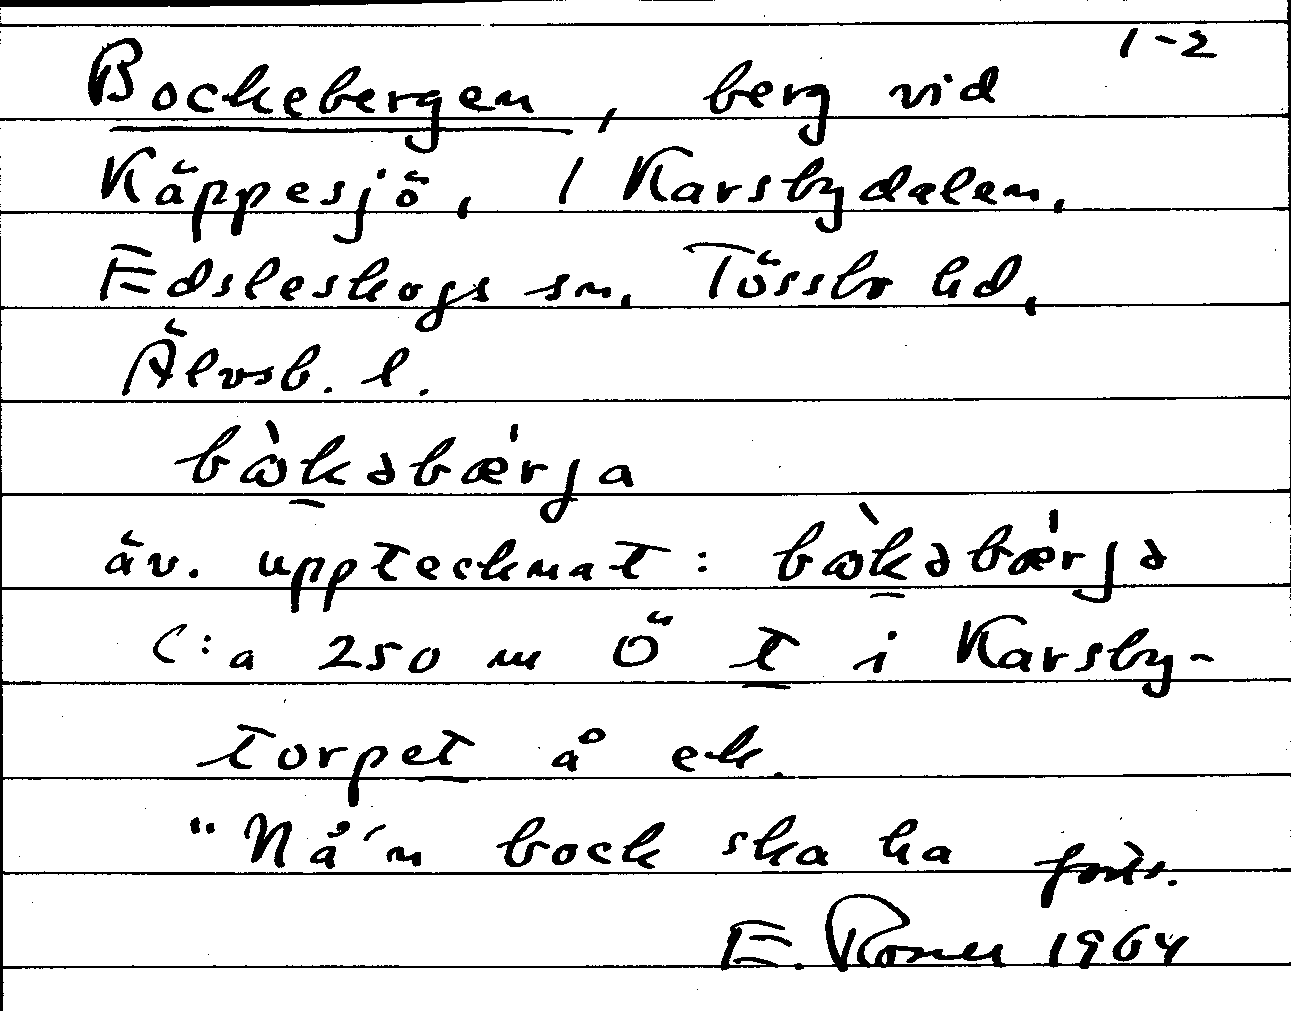 1-2
Bockebergen, berg vid
Käppesjö, i Karsbydalen,
Edsleskogs sn, Tössbo hd,
Älvsb. l.
bɷ̀kəbæ̍rja
äv. upptecknat: bɷ̀kəbæ̍rjə
C:a 250 m Ö t i Karsby-
torpet å ek.
"Nå'n bock ska ha forts.
E. 1964